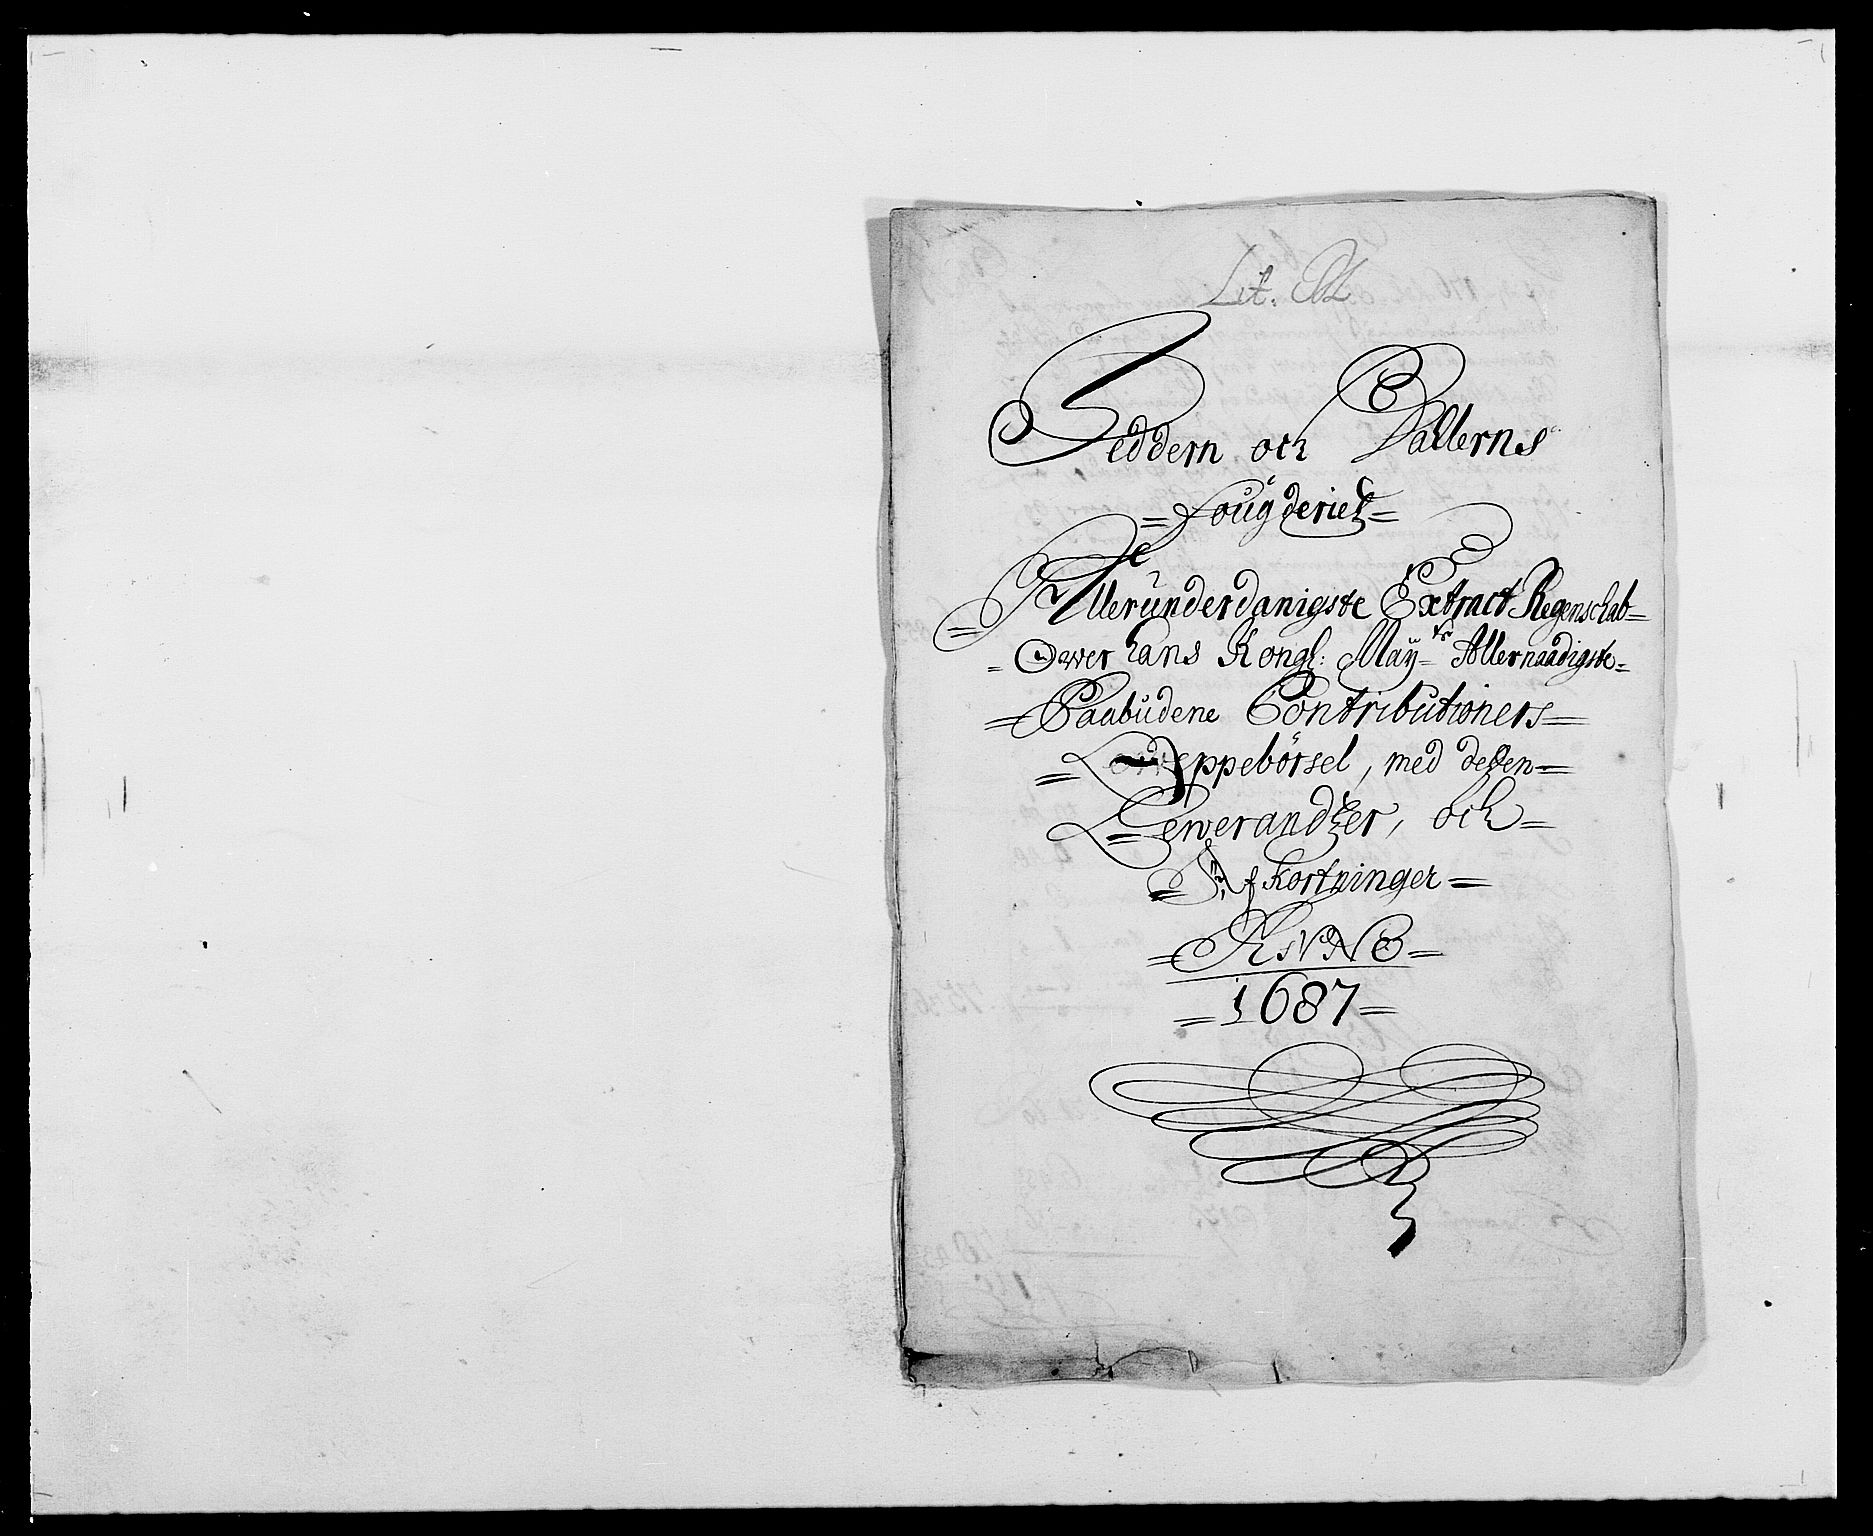 Lit. M
Jeddern och Dallerns
=Fougderies=
=Allerunderdanigste Extract Regenschab=
=Ower Hans Kongl: Maÿ=ts Allernaadigste=
=Paabudene Contributioners=
=Oppebörsel, med deszen=
=Lewerandtzer, och=
=Afkortninger=
=ANNO=
=1687=